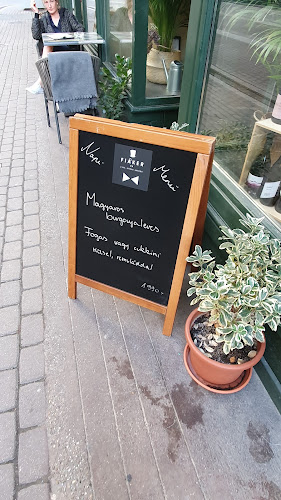 FIÁKER
Napi Menü
Magyaros
burgonyaleves
Fogas vagy cukkini
kaséi, remoládéval
1990.-